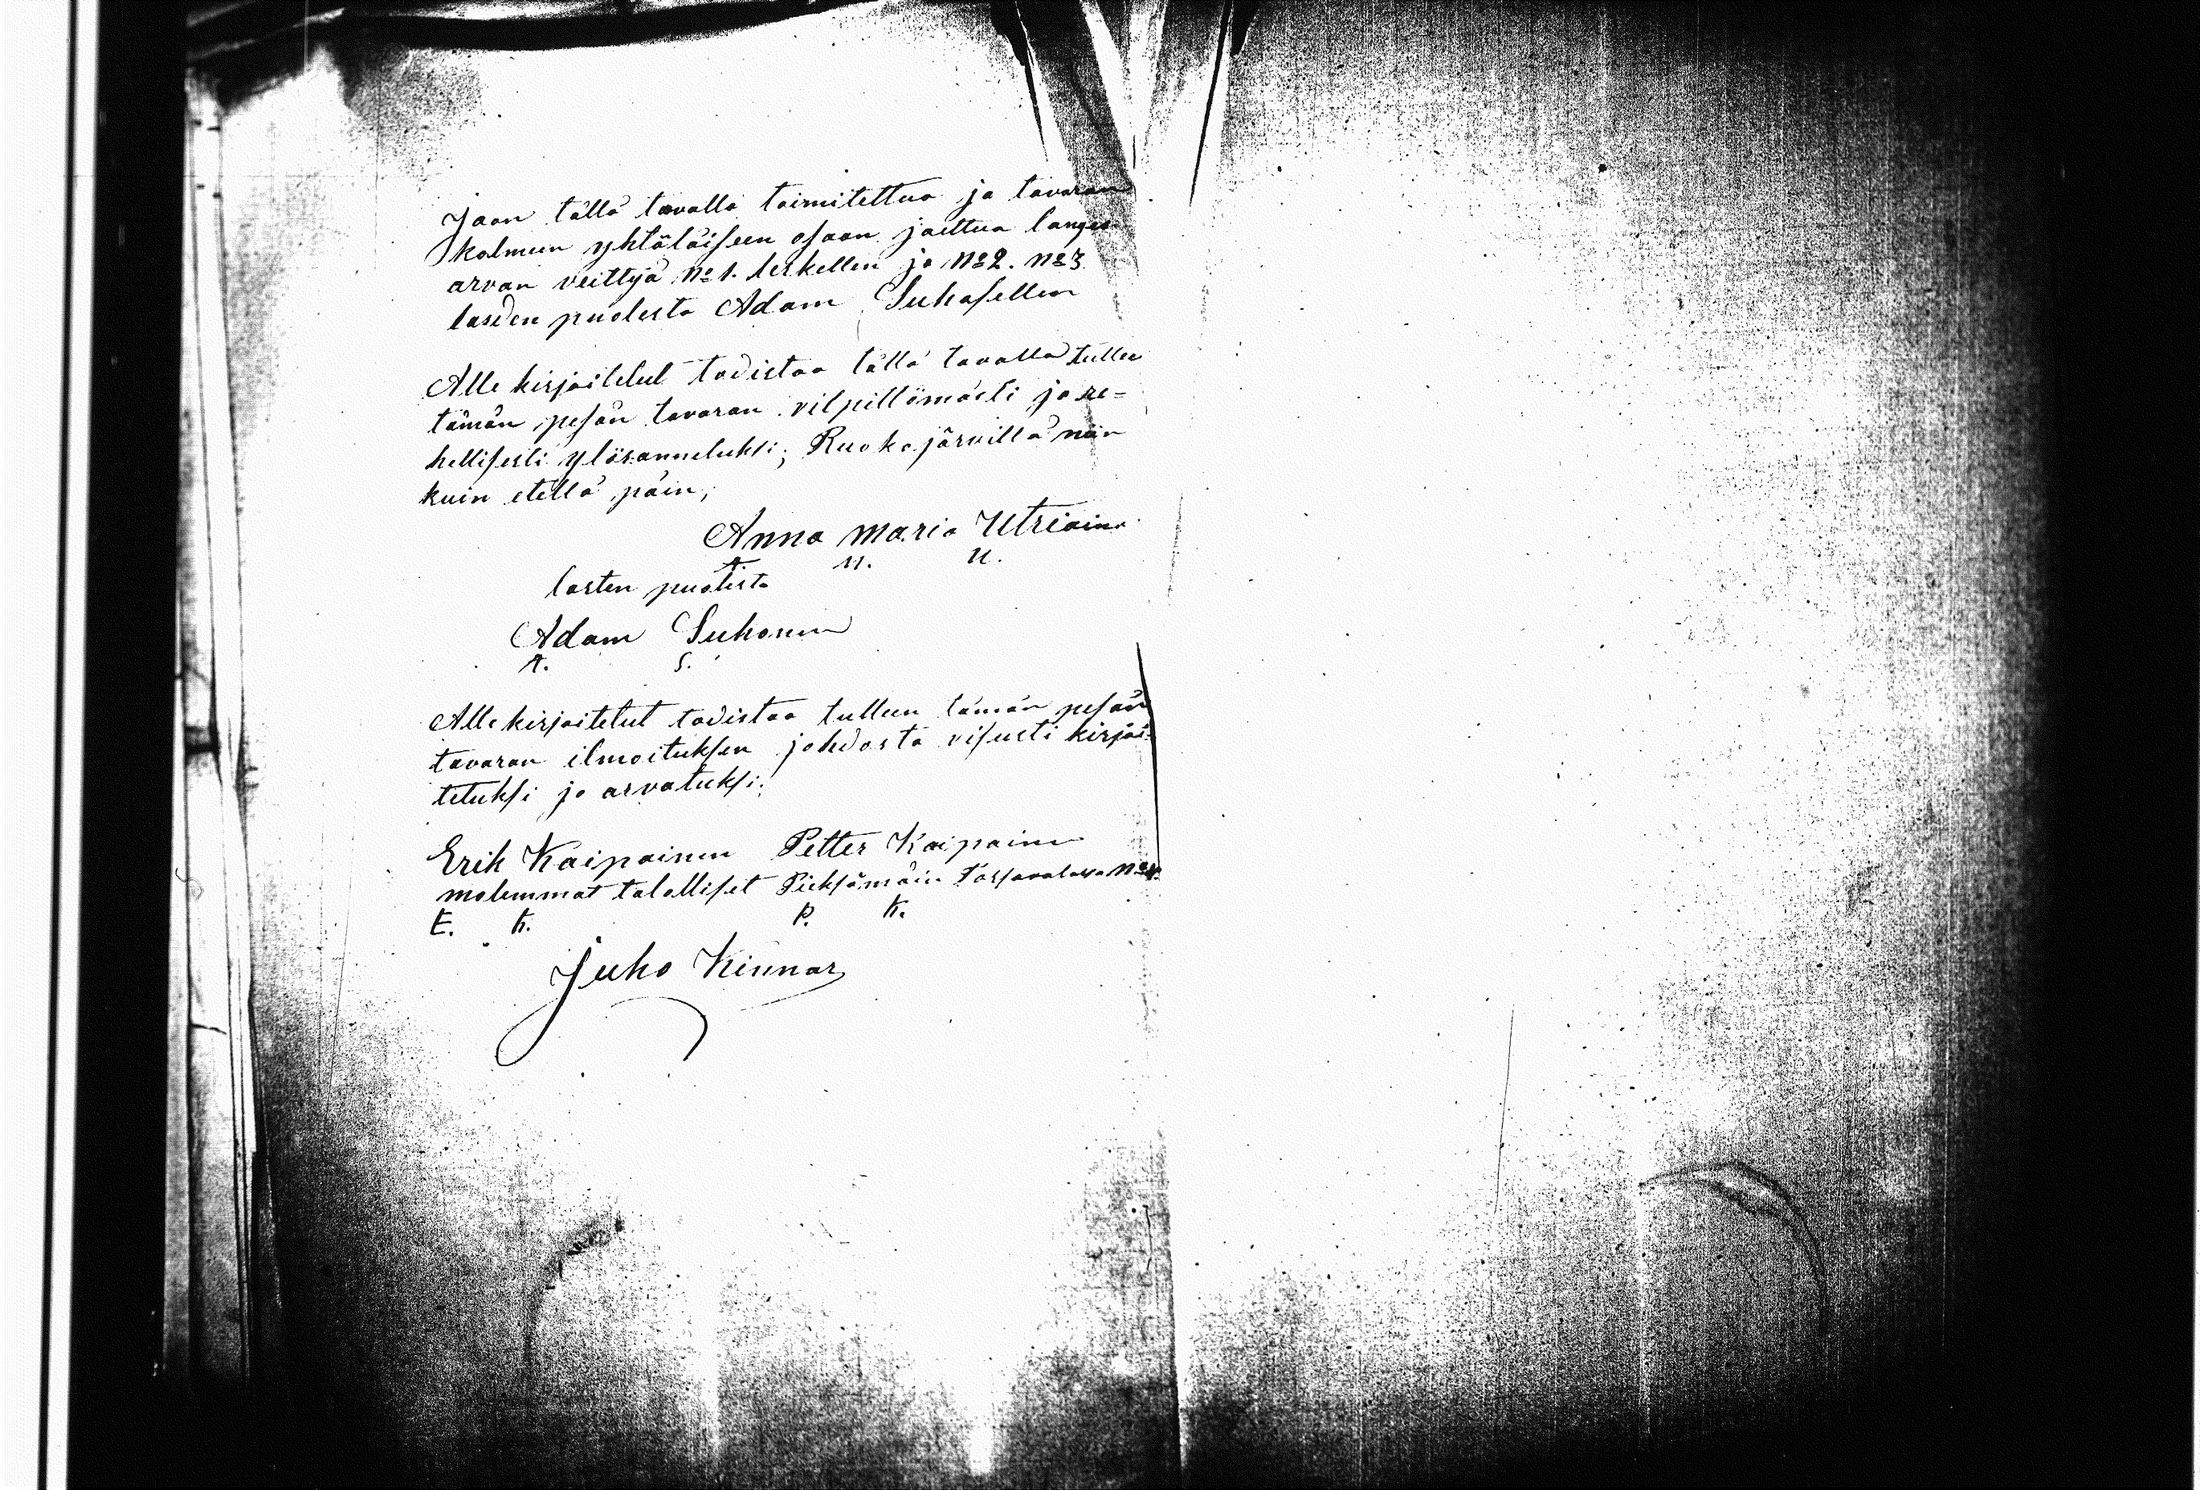 Jaon tällä tavalla toimitettua ja tavaran
kolmeen yhtäläiseen osaan jaettua langes
arvan veittyä No 1. leskellen ja No 2. No 3
lasden puolesta Adam Suhosellen
Alle kirjoitetut todistaa tällä tavalla tullen
tämän pesän tavaran vilpittömästi ja re=
hellisesti ylösannetuksi; Ruokojärvillä niin
kuin etellä päin;
Anna Maria Utriain
A. M. U.
lasten puolesta
Adam Suhonen
A. S.
Alle kirjoitetut todistaa tulleen tämän pesän
tavaran ilmoituksen johdosta visusti kirjoi=
tetuksi ja arvatuksi;
Erik Kaipainen Petter Kaipainen
molemmat talolliset Pieksämäin No
E. K. P. K.
Juho Kinnar